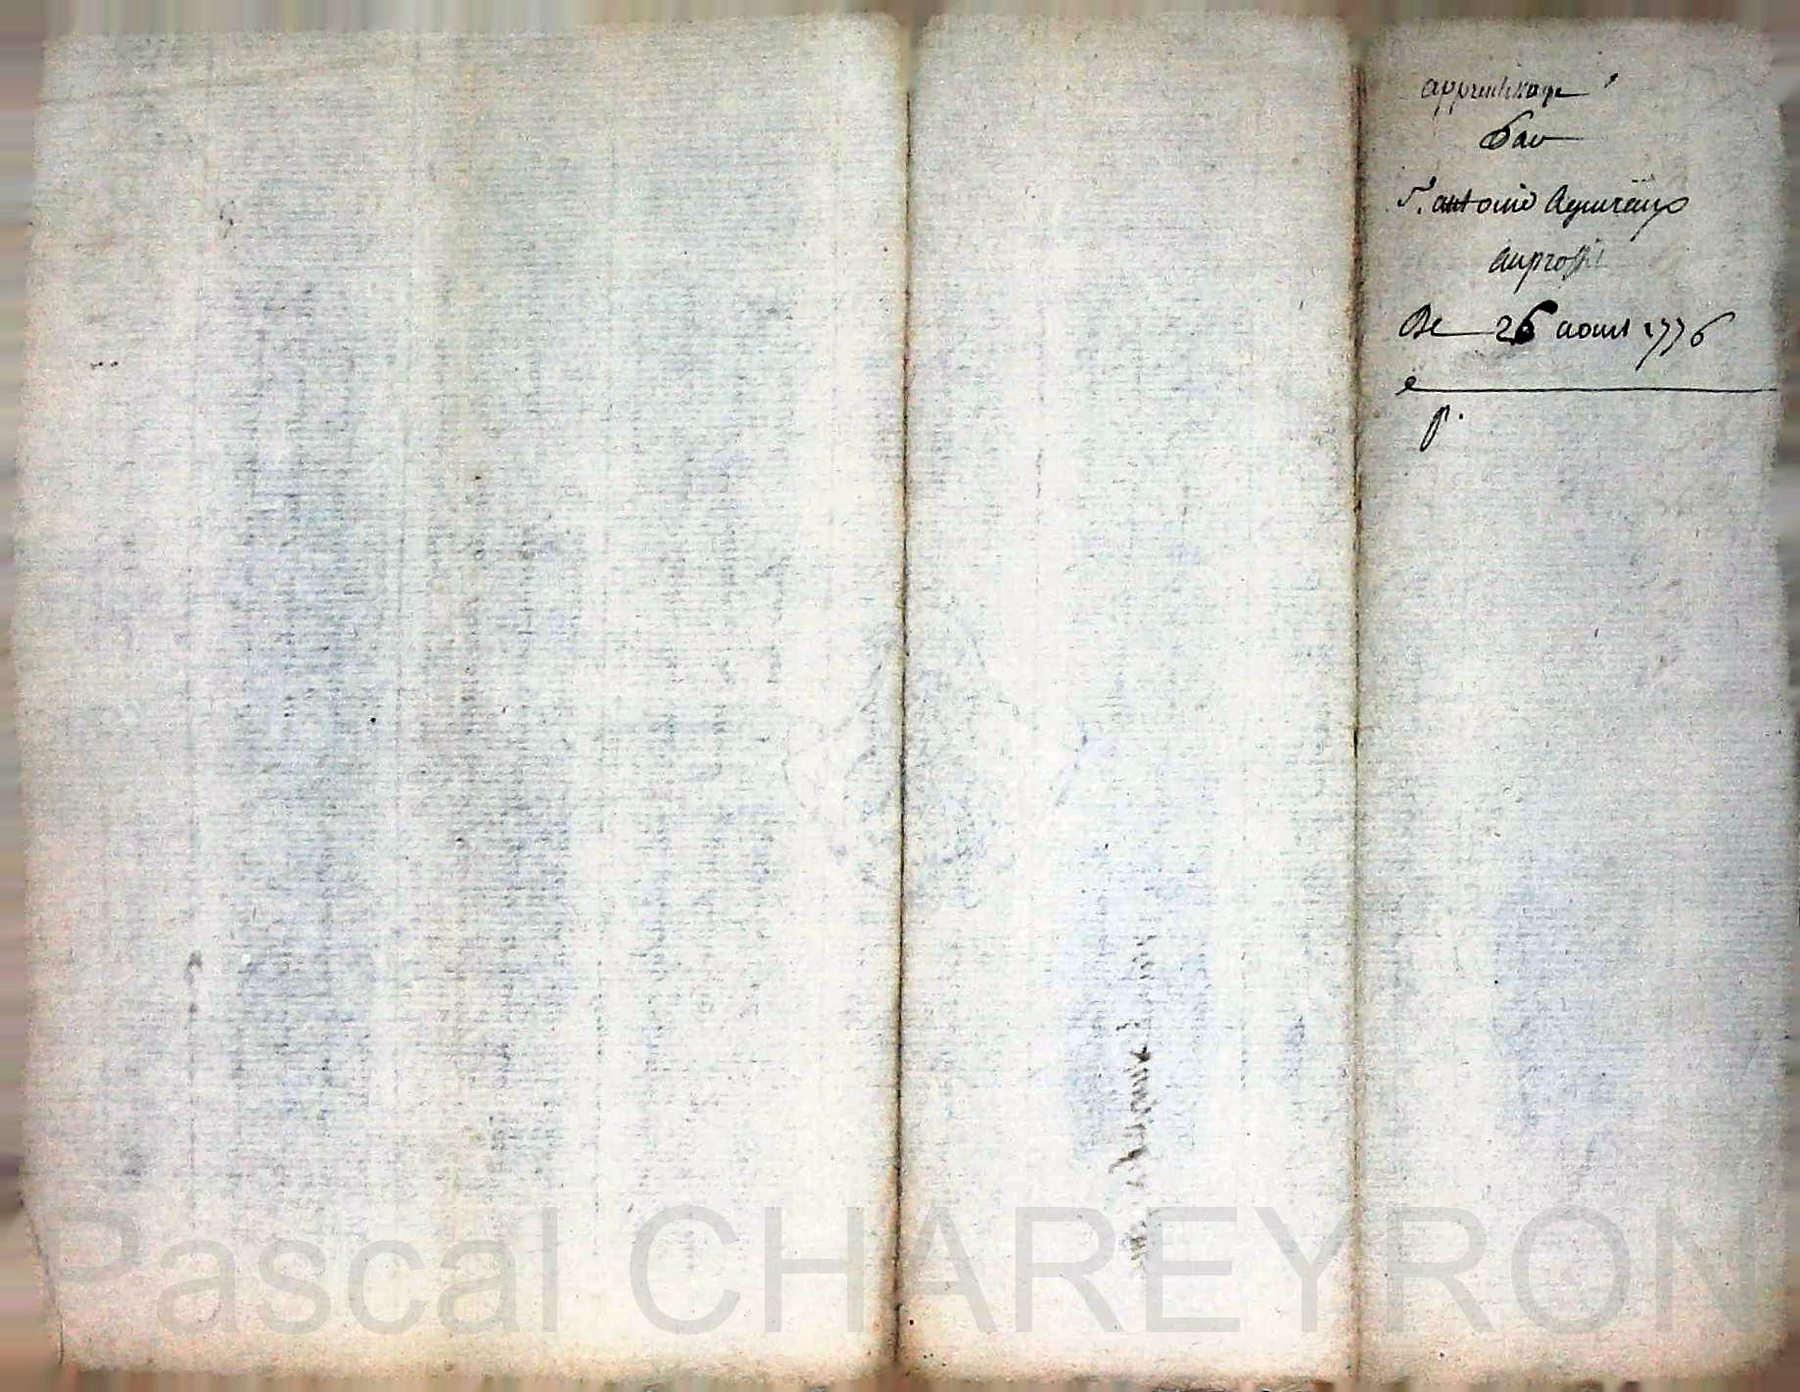 apprentissage
Par
Sr. antoine
au proffit
De 26 aoust 1776
p.
Pascal CHAREYRON